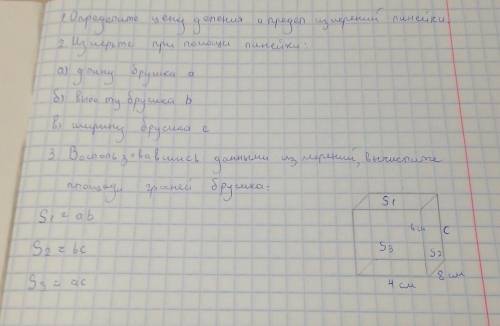 1. Определите цену деления и предел измерений линейки.
2. Измерьте при помощи линейки:
а) длину бруска a
б) высоту бруска b
в) ширину бруска c
3. Воспользовавшись данными измерений, вычислите
площади граней бруска:
S1 = ab
S2 = bc
S3 = ac
S1
c
S3
S2
4 см
8 см